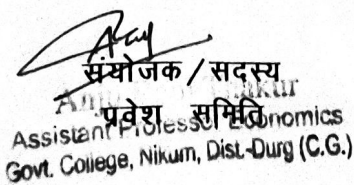 संयोजक / सदस्य
प्रवेश समिति
Assistant Professor Economics
Govt. College, Nikum, Dist.-Durg (C.G.)